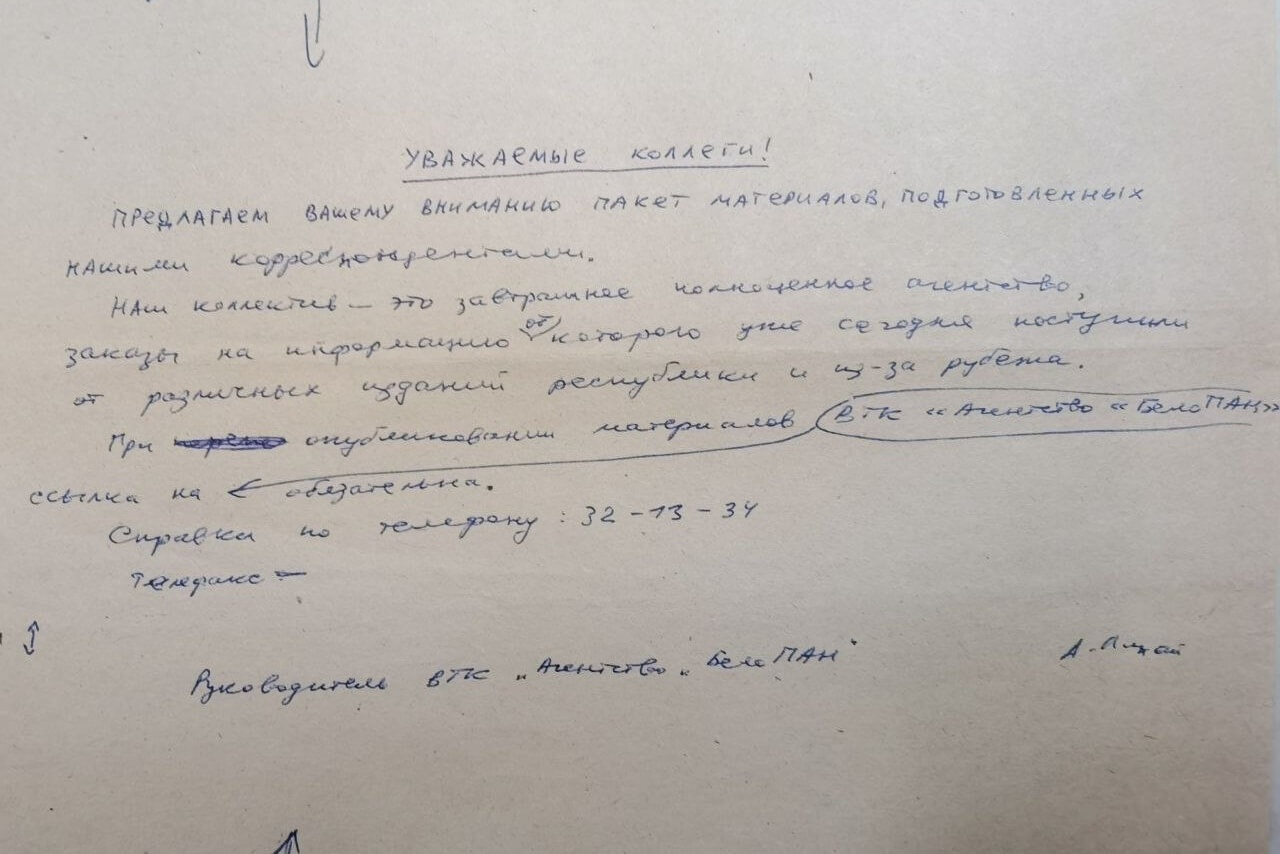 УВАЖАЕМЫЕ КОЛЛЕГИ!
ПРЕДЛАГАЕМ ВАШЕМУ ВНИМАНИЮ ПАКЕТ МАТЕРИАЛОВ, ПОДГОТОВЛЕННЫХ
НАШИМИ корреспондентами.
НАШ коллектив – это завтрашнее полноценное агентство,
заказы на информацию от которого уже сегодня поступили
от различных изданий республики и из-за рубежа.
При опубликовании материалов ВТК «Агентство «БелаПАН»
ссылка на обязательна.
Справки по телефону: 32-13-34
Телефакс –
Руководитель ВТК „Агентство „БелаПАН"